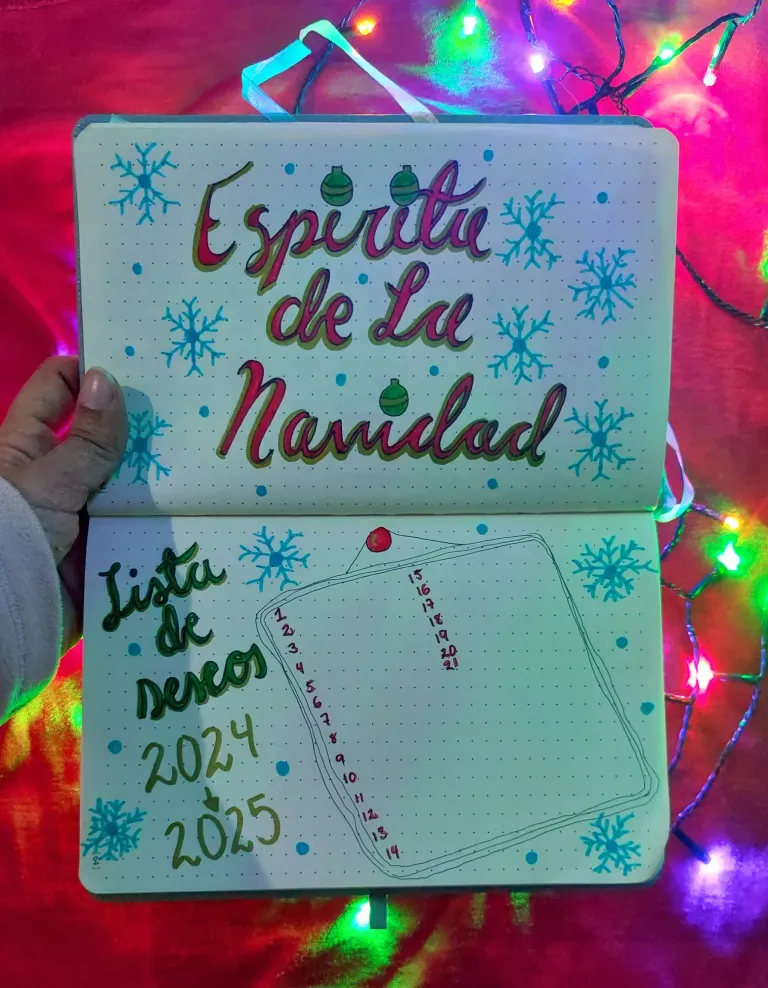 Espiritu
de La
Navidad
Lista
de
Deseos
2024
2025
1
2
3
4
5
6
7
8
9
10
11
12
13
14
15
16
17
18
19
20
21